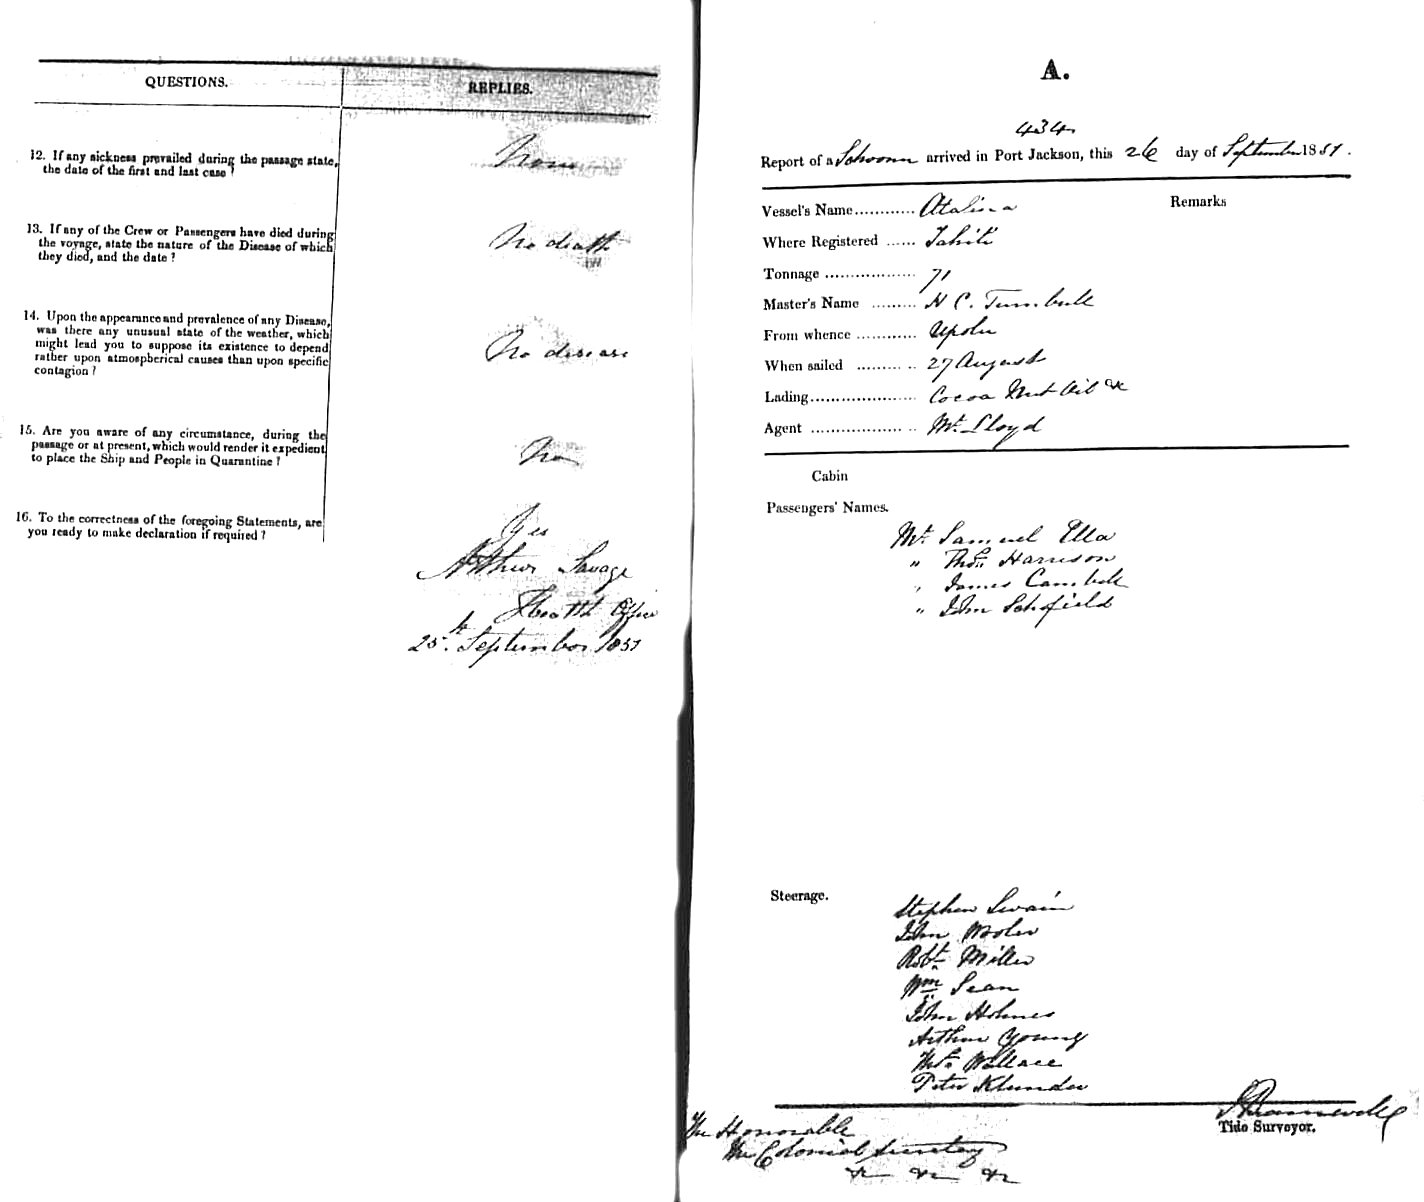 QUESTIONS.
REPLIES.
12. If any sickness prevailed during the passage state,
the date of the first and last case?
None
13. If any of the Crew or Passengers have died during
the voyage, state the nature of the Disease of which
they died, and the date?
No death
14. Upon the appearance and prevalence of any Disease,
was there any unusual state of the weather, which
might lead you to suppose its existence to depend
rather upon atmospherical causes than upon specific
contagion?
No disease
15. Are you aware of any circumstance, during the
passage or at present, which would render it expedient
to place the Ship and People in Quarantine?
No
16. To the correctness of the foregoing Statements, are
you ready to make declaration if required?
Yes
Arthur Savage
Health Officer
25th September 1851
A.
434
Report of a Schooner arrived in Port Jackson, this 26 day of September 1851.
Remarks
Vessel's Name............ Atalina
Where Registered ...... Tahiti
Tonnage .................. 71
Master's Name ......... H C. Turnbull
From whence ............ Upolu
When sailed ......... .. 27 August
Lading..................... Cocoa Nut Oil &c
Agent ................... .. Mr. Lloyd
Cabin
Passengers' Names.
Mr. Samuel Ella
" Thos. Harrison
" James Cambell
" John Schofield
Steerage.
Stephen Swain
John
Robt. Miller
Wm. Sean
John Holmes
Arthur Young
Thos. Wallace
Peter Klunder
Tide Surveyor.
The Honorable
The Colonial Secretary
&c &c &c